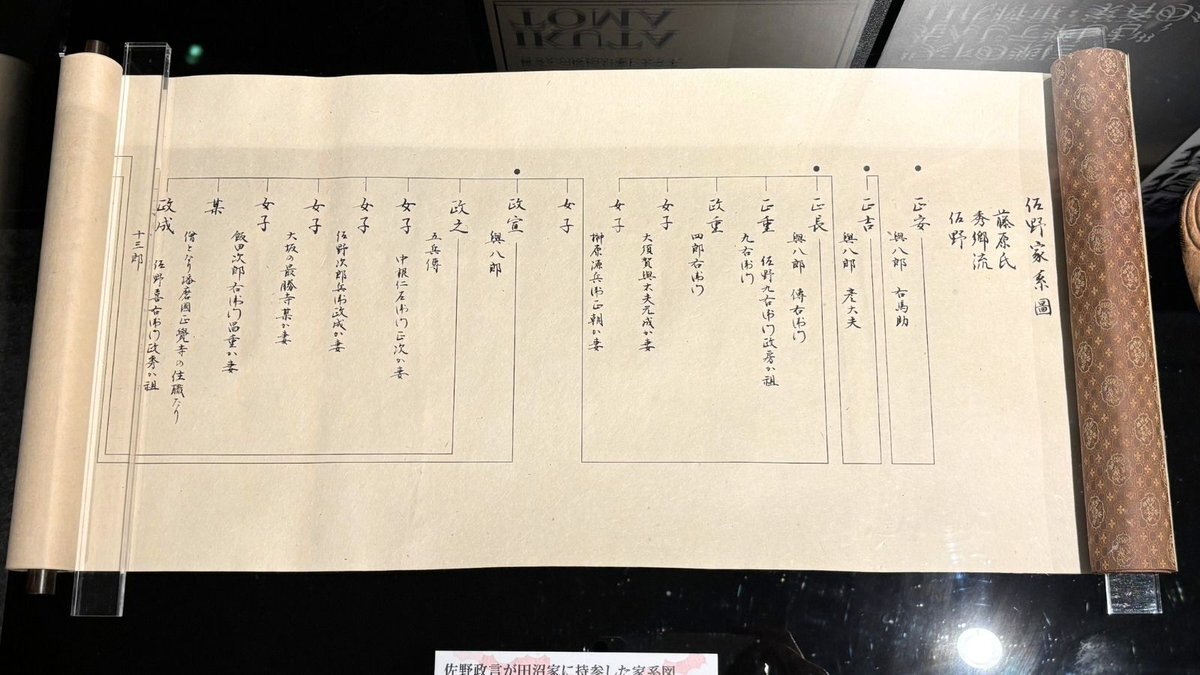 佐野家系圖
藤原氏
秀郷流
佐野
正安
與八郎 右馬助
正吉
與八郎 彦大夫
正長
與八郎 傳右衛门
正重
佐野九右衛门政房か祖
九右衛门
政重
四郎右衛门
女子
大須賀與大夫元成か妻
女子
榊原源兵衛正朝か妻
女子
政宣
與八郎
政之
五兵傳
女子
中根仁左衛门正次か妻
女子
佐野次郎兵衛政成か妻
女子
大坂の最勝寺某か妻
女子
飯田次郎右衛门昌重か妻
某
僧となり播磨國正覺寺の住職たり
政成
佐野喜右衛门政秀か祖
十三郎
佐野政言が田沼家に持参した家系図